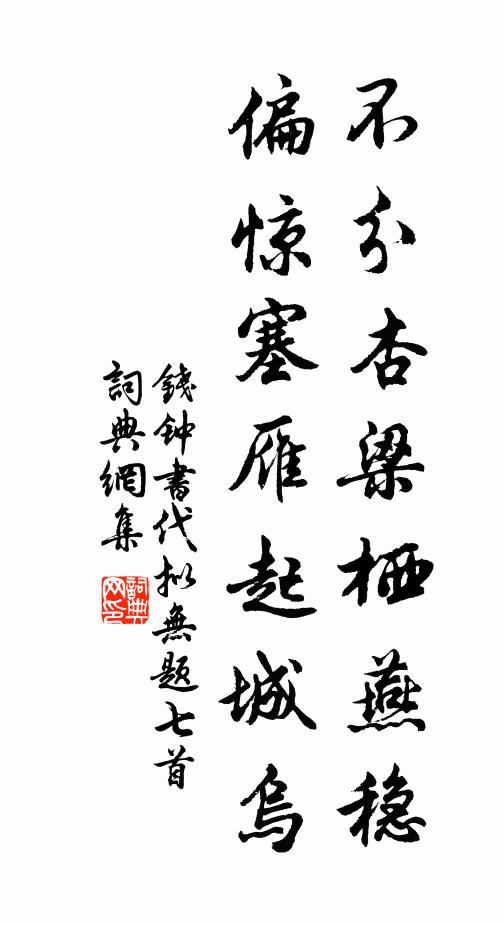 不分杏梁栖燕稳
偏惊塞雁起城乌
錢钟書代拟無题七首
詞典網集
詞典
网印